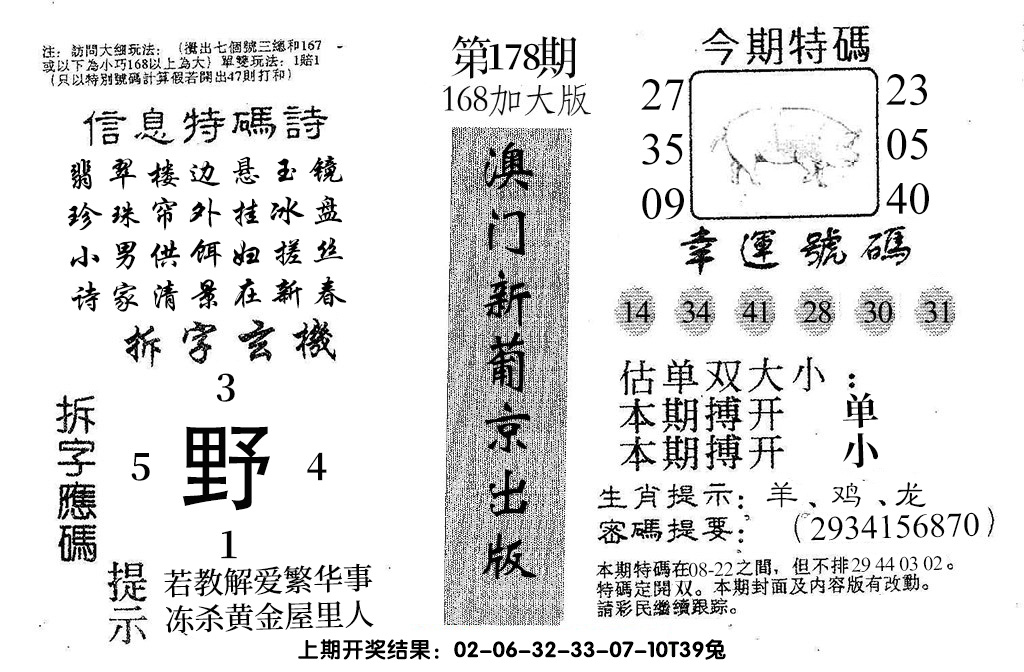 注：訪問大細玩法：（攪出七個號三總和167
或以下為小巧168以上為大）單雙玩法：1賠1
（只以特別號碼計算假若開出47則打和）
信息特碼詩
翡翠楼边悬玉镜
珍珠帘外挂冰盘
小男供饵妇搓丝
诗家清景在新春
拆字玄機
拆字應碼
3
5 野 4
1
提示
若教解爱繁华事
冻杀黄金屋里人
第178期
168加大版
澳门新葡京出版
今期特碼
27 23
35 05
09 40
幸運號碼
14 34 41 28 30 31
估单双大小：
本期搏开 单
本期搏开 小
生肖提示：羊、鸡、龙
密碼提要：（2934156870）
本期特碼在08-22之間，但不排29 44 03 02。
特碼定開双。本期封面及内容版有改動。
請彩民繼續跟踪。
上期开奖结果：02-06-32-33-07-10T39兔